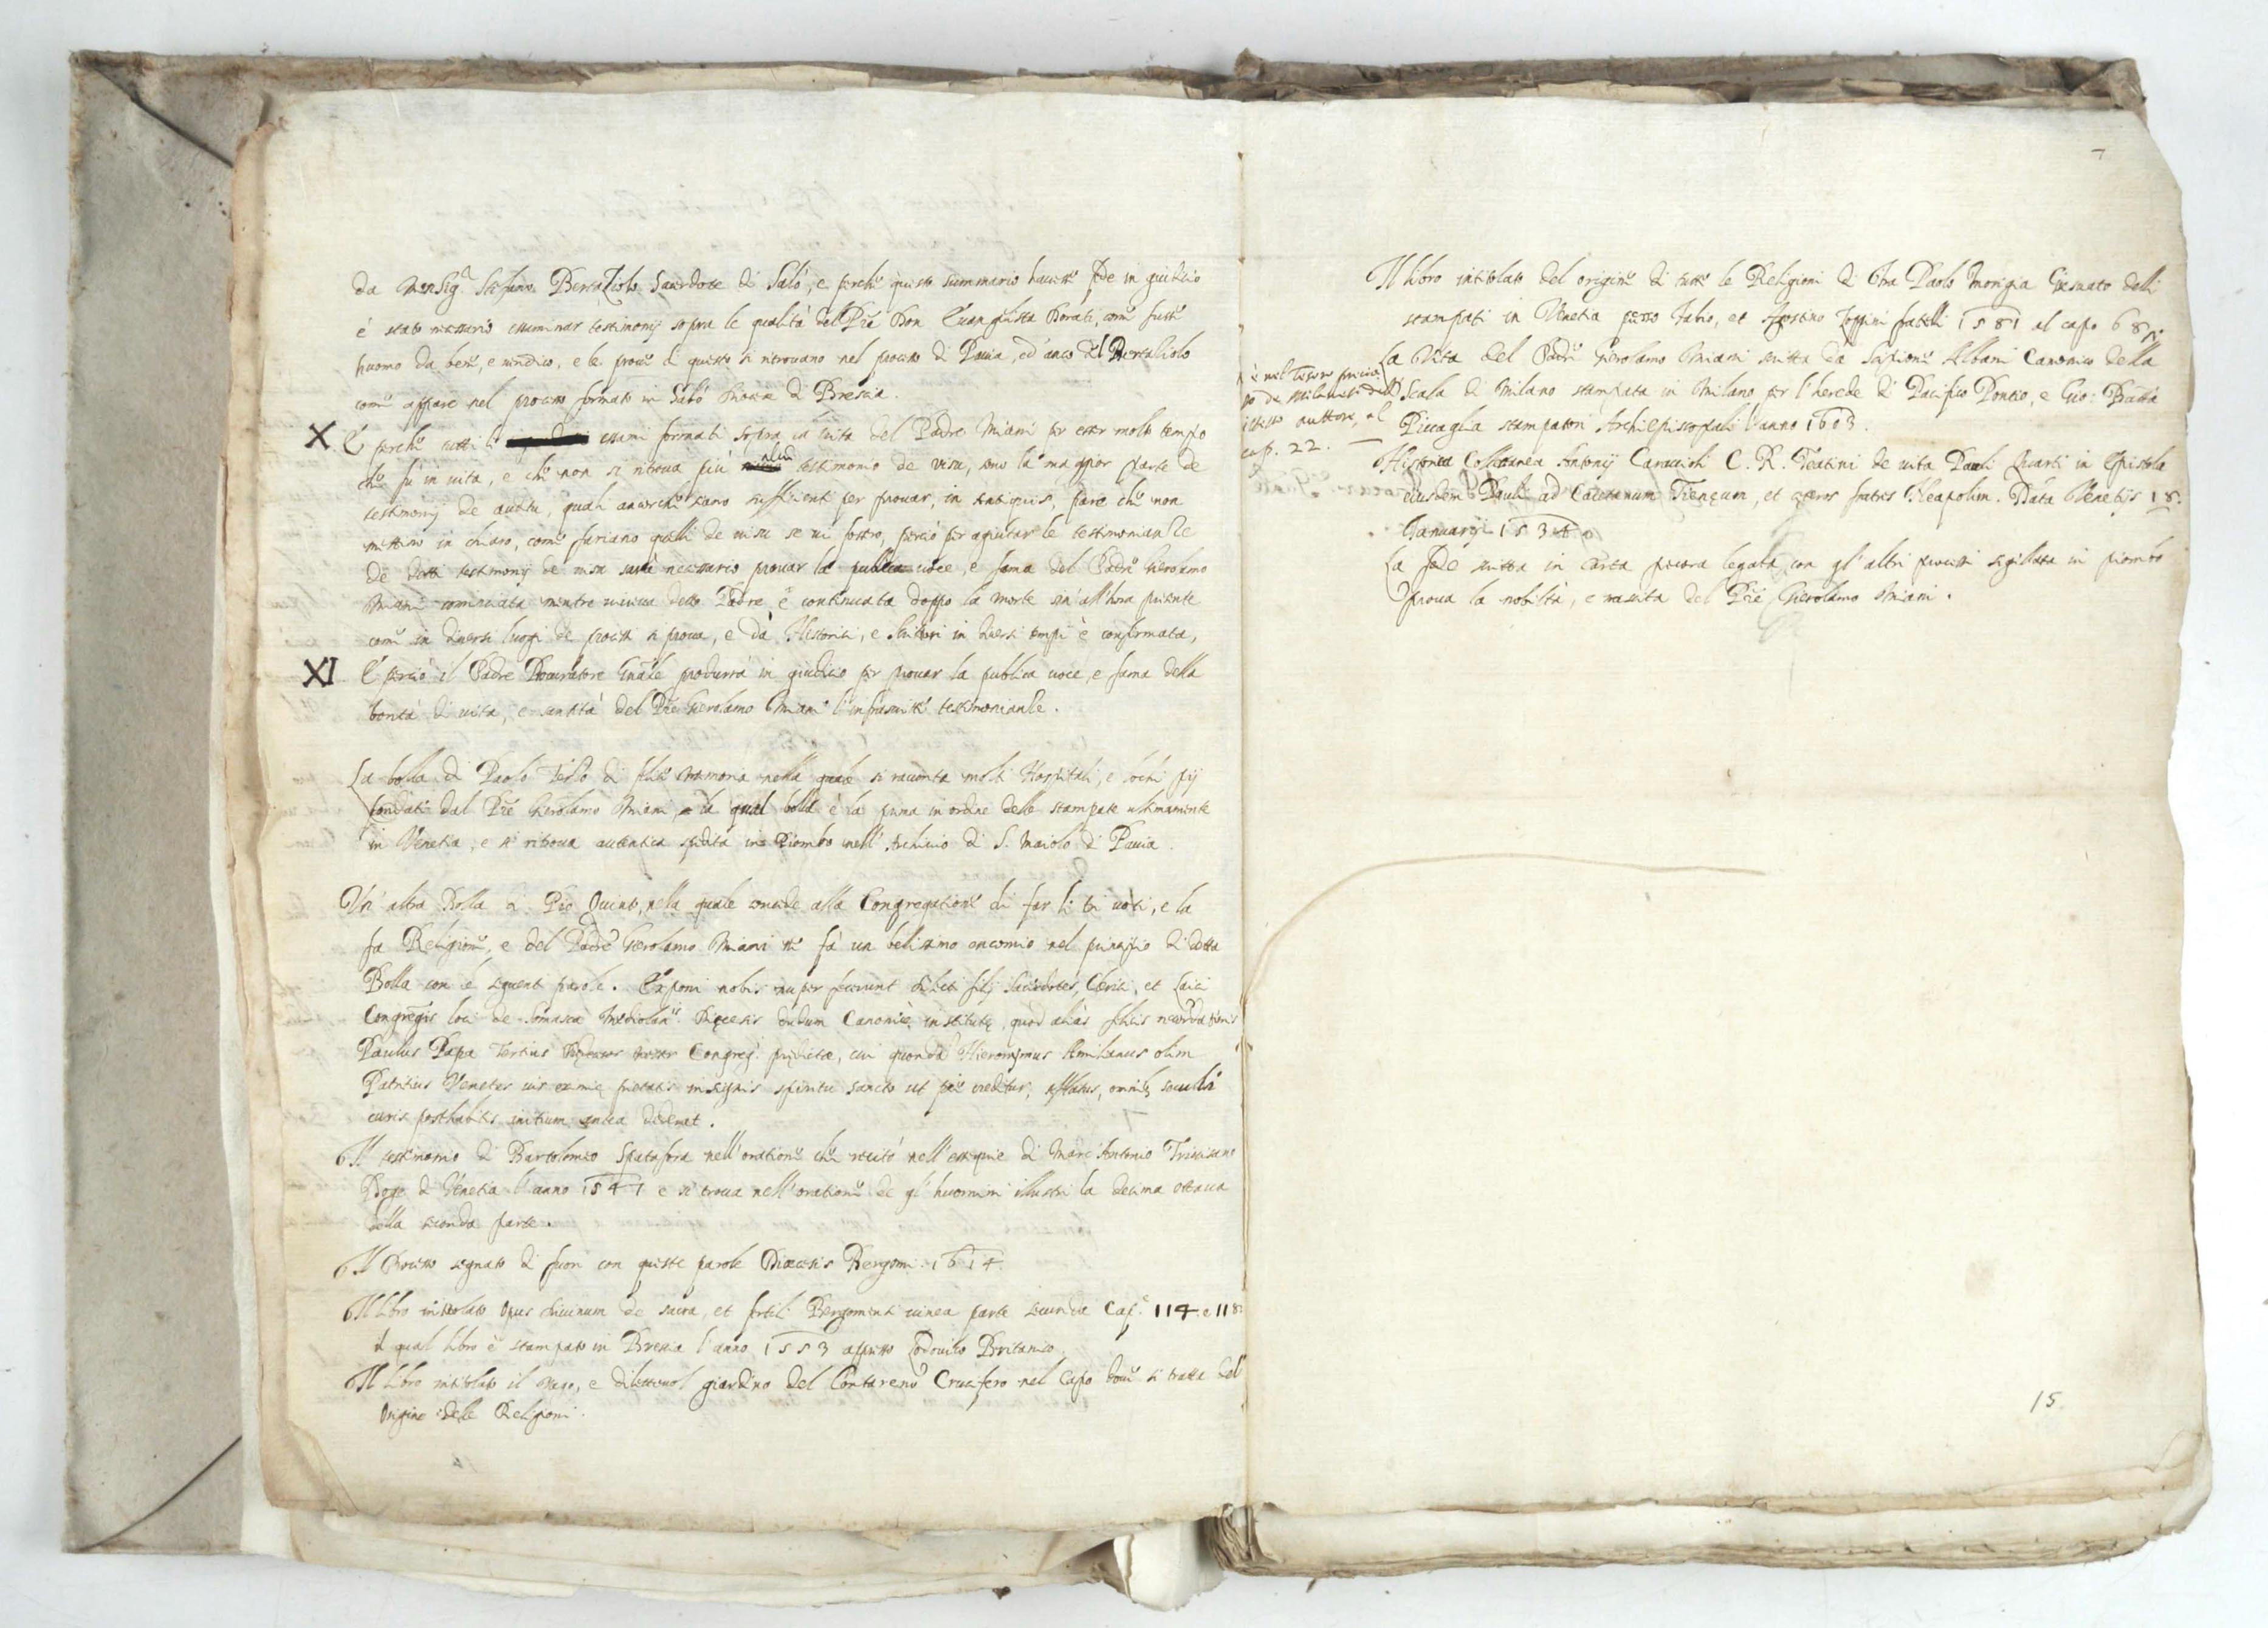 da Monsig.r Stefano Bertaziolo Sacerdote di Salò, e perche questo summario havesse fede in giuditio
è stato necessario essaminar testimonij sopra le qualità del Pre Don Evangelista Dorati, come fusse
huomo da bene, e veridico, e le prove di questo si ritrovano nel processo di Pavia, ed'anco del Bertaliolo
come appare nel processo formato in Salò Diocese di Brescia.
X E perche tutti li essami formati sopra la vita del Padre Miani per esser molto tempo
che fù in vita, e che non si ritrova più alcun testimonio de visu, sono la maggior parte de
testimonij de auditu, quali ancorche siano sufficienti per provar, in antiquis, pare che non
mettino in chiaro, come fariano quelli de visu se vi fossero, perciò per agiutar le testimonianze
de detti testimonij de visu sarà necessario provar la publica voce, e fama del Padre Gierolamo
Miani cominciata mentre viveva detto Padre, e continuata doppo la morte sin'all'hora presente
come in diversi luoghi de processi si prova, e da Historici, e scrittori in diversi tempi è confirmata,
XI E perciò il Padre Procuratore Gnale produrrà in giuditio per provar la publica voce, e fama della
bontà di vita, e santità del Pre Gierolamo Miani l'infrascritte testimonianze.
La bolla di Paolo Terzo di felice memoria nella quale si racconta molti Hospitali, e lochi pij
fondati dal Pre Gierolamo Miani, la qual bolla è la prima in ordine delle stampate ultimamente
in Venetia, e si ritrova autentica spedita in Piombo nell'Archivio di S. Maiolo di Pavia.
Un'altra Bolla di Pio Quinto, nella quale concede alla Congregatione di far li tre voti, e la
fa Religione, e del Padre Gierolamo Miani ne fà un bellissimo encomio nel principio di detta
Bolla con le seguenti parole. Exponi nobis nuper fecerunt dilecti filij Sacerdotes, Clerici, et Laici
Congregis loci de Somasca Mediolan.s Diecesis dudum Canonicè institutę, quod aliàs felicis recordationis
Paulus Papa Tertius Predecessor noster Congreg. predictæ, cui quondã Hieronymus Æmilianus olim
Patritius Venetus vir eximię pietatis insignis spiritu sancto ut piè creditur, afflatus, omnib; seculi
curis posthabitis initium antea dederat.
Il testimonio di Bartolomeo Spatafora nell'oratione che recitò nell'essequie di Marc'Antonio Trivisano
Doge di Venetia l'anno 1541 e si trova nell'oratione de gl'huomini illustri la decima ottava
della seconda parte.
Il Processo segnato di fuori con queste parole Diœcesis Bergomi. 1614.
Il libro intitolato Opus divinum de sacra, et fertili Bergomensi vinea parte secunda Cap. 114. e 118.
il qual libro è stampato in Brescia l'anno 1553 appresso Lodovico Britanico
Il libro intitolato il vago, e dilettevole giardino del Contareno Crucifero nel Capo dove si tratta del
Origine delle Religioni.
7
Il libro intitolato del origine di tutte le Religioni di Fra Paolo Morigia Giesuato delli
stampati in Venetia presso Fabio, et Agostino Zoppini fratelli 1581 al capo 68.
è nel Tesoro precio
so de Milanesi dell'
istesso auttore, al
cap. 22.
La Vita del Padre Gierolamo Miani scritta da Scipione Albani Canonico della
Scala di Milano stampata in Milano per l'herede di Pacifico Pontio, e Gio: Batta
Piccaglia stampatori Archiepiscopali l'anno 1603.
Historica Collectanea Antonij Caraccioli C. R. Teatini de vita Pauli Quarti in Epistola
eiusdem Pauli ad Caietanum Tienęum, et cęteros fratres Neapolim. Data Venetijs 18.
Ianuarij 1534.
La fede scritta in carta pecora legata con gl'altri processi sigillata in piombo
prova la nobiltà, e nascita del Pre Gierolamo Miani.
15.